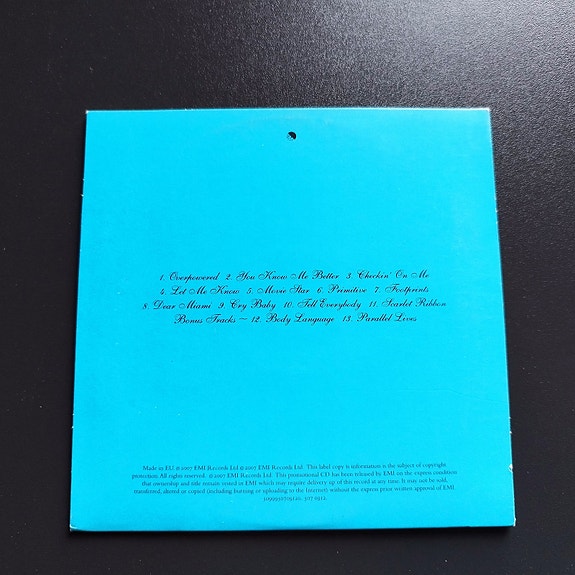 1. Overpowered 2. You Know Me Better 3. Checkin' On Me
4. Let Me Know 5. Movie Star 6. Primitive 7. Footprints
8. Dear Miami 9. Cry Baby 10. Tell Everybody 11. Scarlet Ribbon
Bonus Tracks ~ 12. Body Language 13. Parallel Lives
Made in EU. ℗ 2007 EMI Records Ltd © 2007 EMI Records Ltd. This label copy is information is the subject of copyright
protection. All rights reserved. © 2007 EMI Records Ltd. This promotional CD has been released by EMI on the express condition
that ownership and title remain vested in EMI which may require delivery up of this record at any time. It may not be sold,
transferred, altered or copied (including burning or uploading to the Internet) without the express prior written approval of EMI.